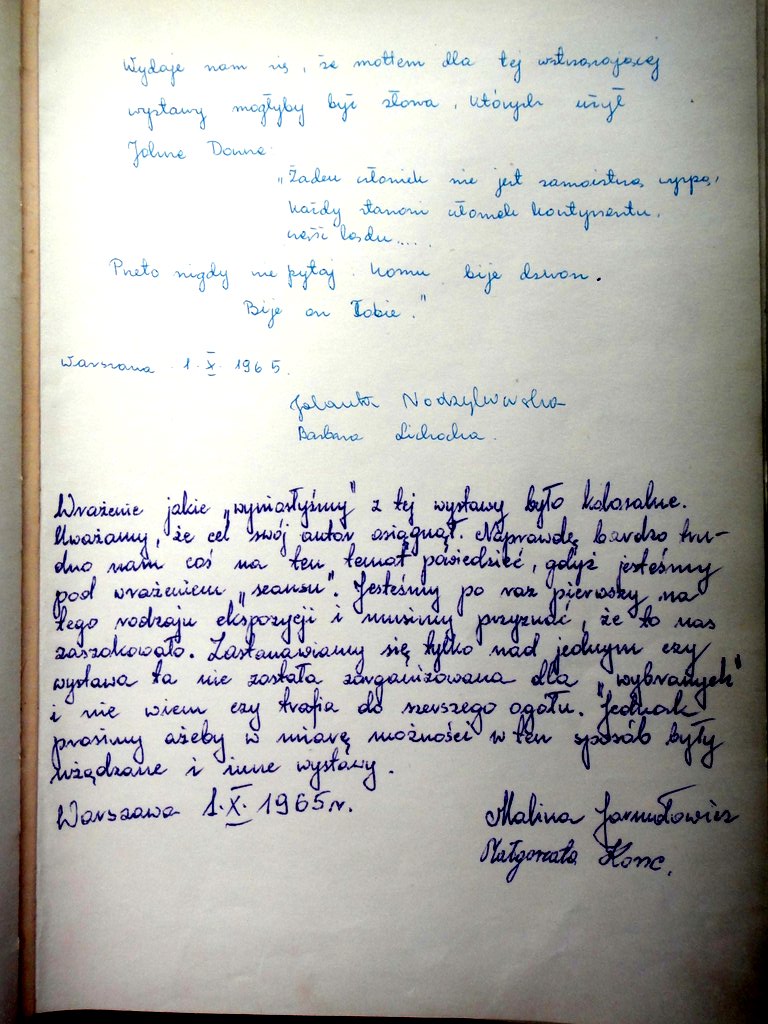 Wydaje nam się, że mottem dla tej wstrząsającej
wystawy mogłyby być słowa, których użył
Johne Donne
"Żaden człowiek nie jest samoistną wyspą,
każdy stanowi ułomek kontynentu,
część lądu....
Przeto nigdy nie pytaj komu bije dzwon.
Bije on Tobie."
Warszawa 1.X.1965.
Jolanta
Barbara Lichocka
Wrażenie jakie "wyniosłyśmy" z tej wystawy było kolosalne.
Uważamy, że cel swój autor osiągnął. Naprawdę bardzo tru-
dno nam coś na ten temat powiedzieć, gdyż jesteśmy
pod wrażeniem "seansu". Jesteśmy po raz pierwszy na
tego rodzaju ekspozycji i musimy przyznać, że to nas
zaszokowało. Zastanawiamy się tylko nad jednym czy
wystawa ta nie została zorganizowana dla "wybranych"
i nie wiem czy trafia do szerszego ogółu. Jednak
prosimy ażeby w miarę możności w ten sposób były
urządzane i inne wystawy.
Warszawa 1.X.1965r.
Malina Jarmułowicz
Małgorzata